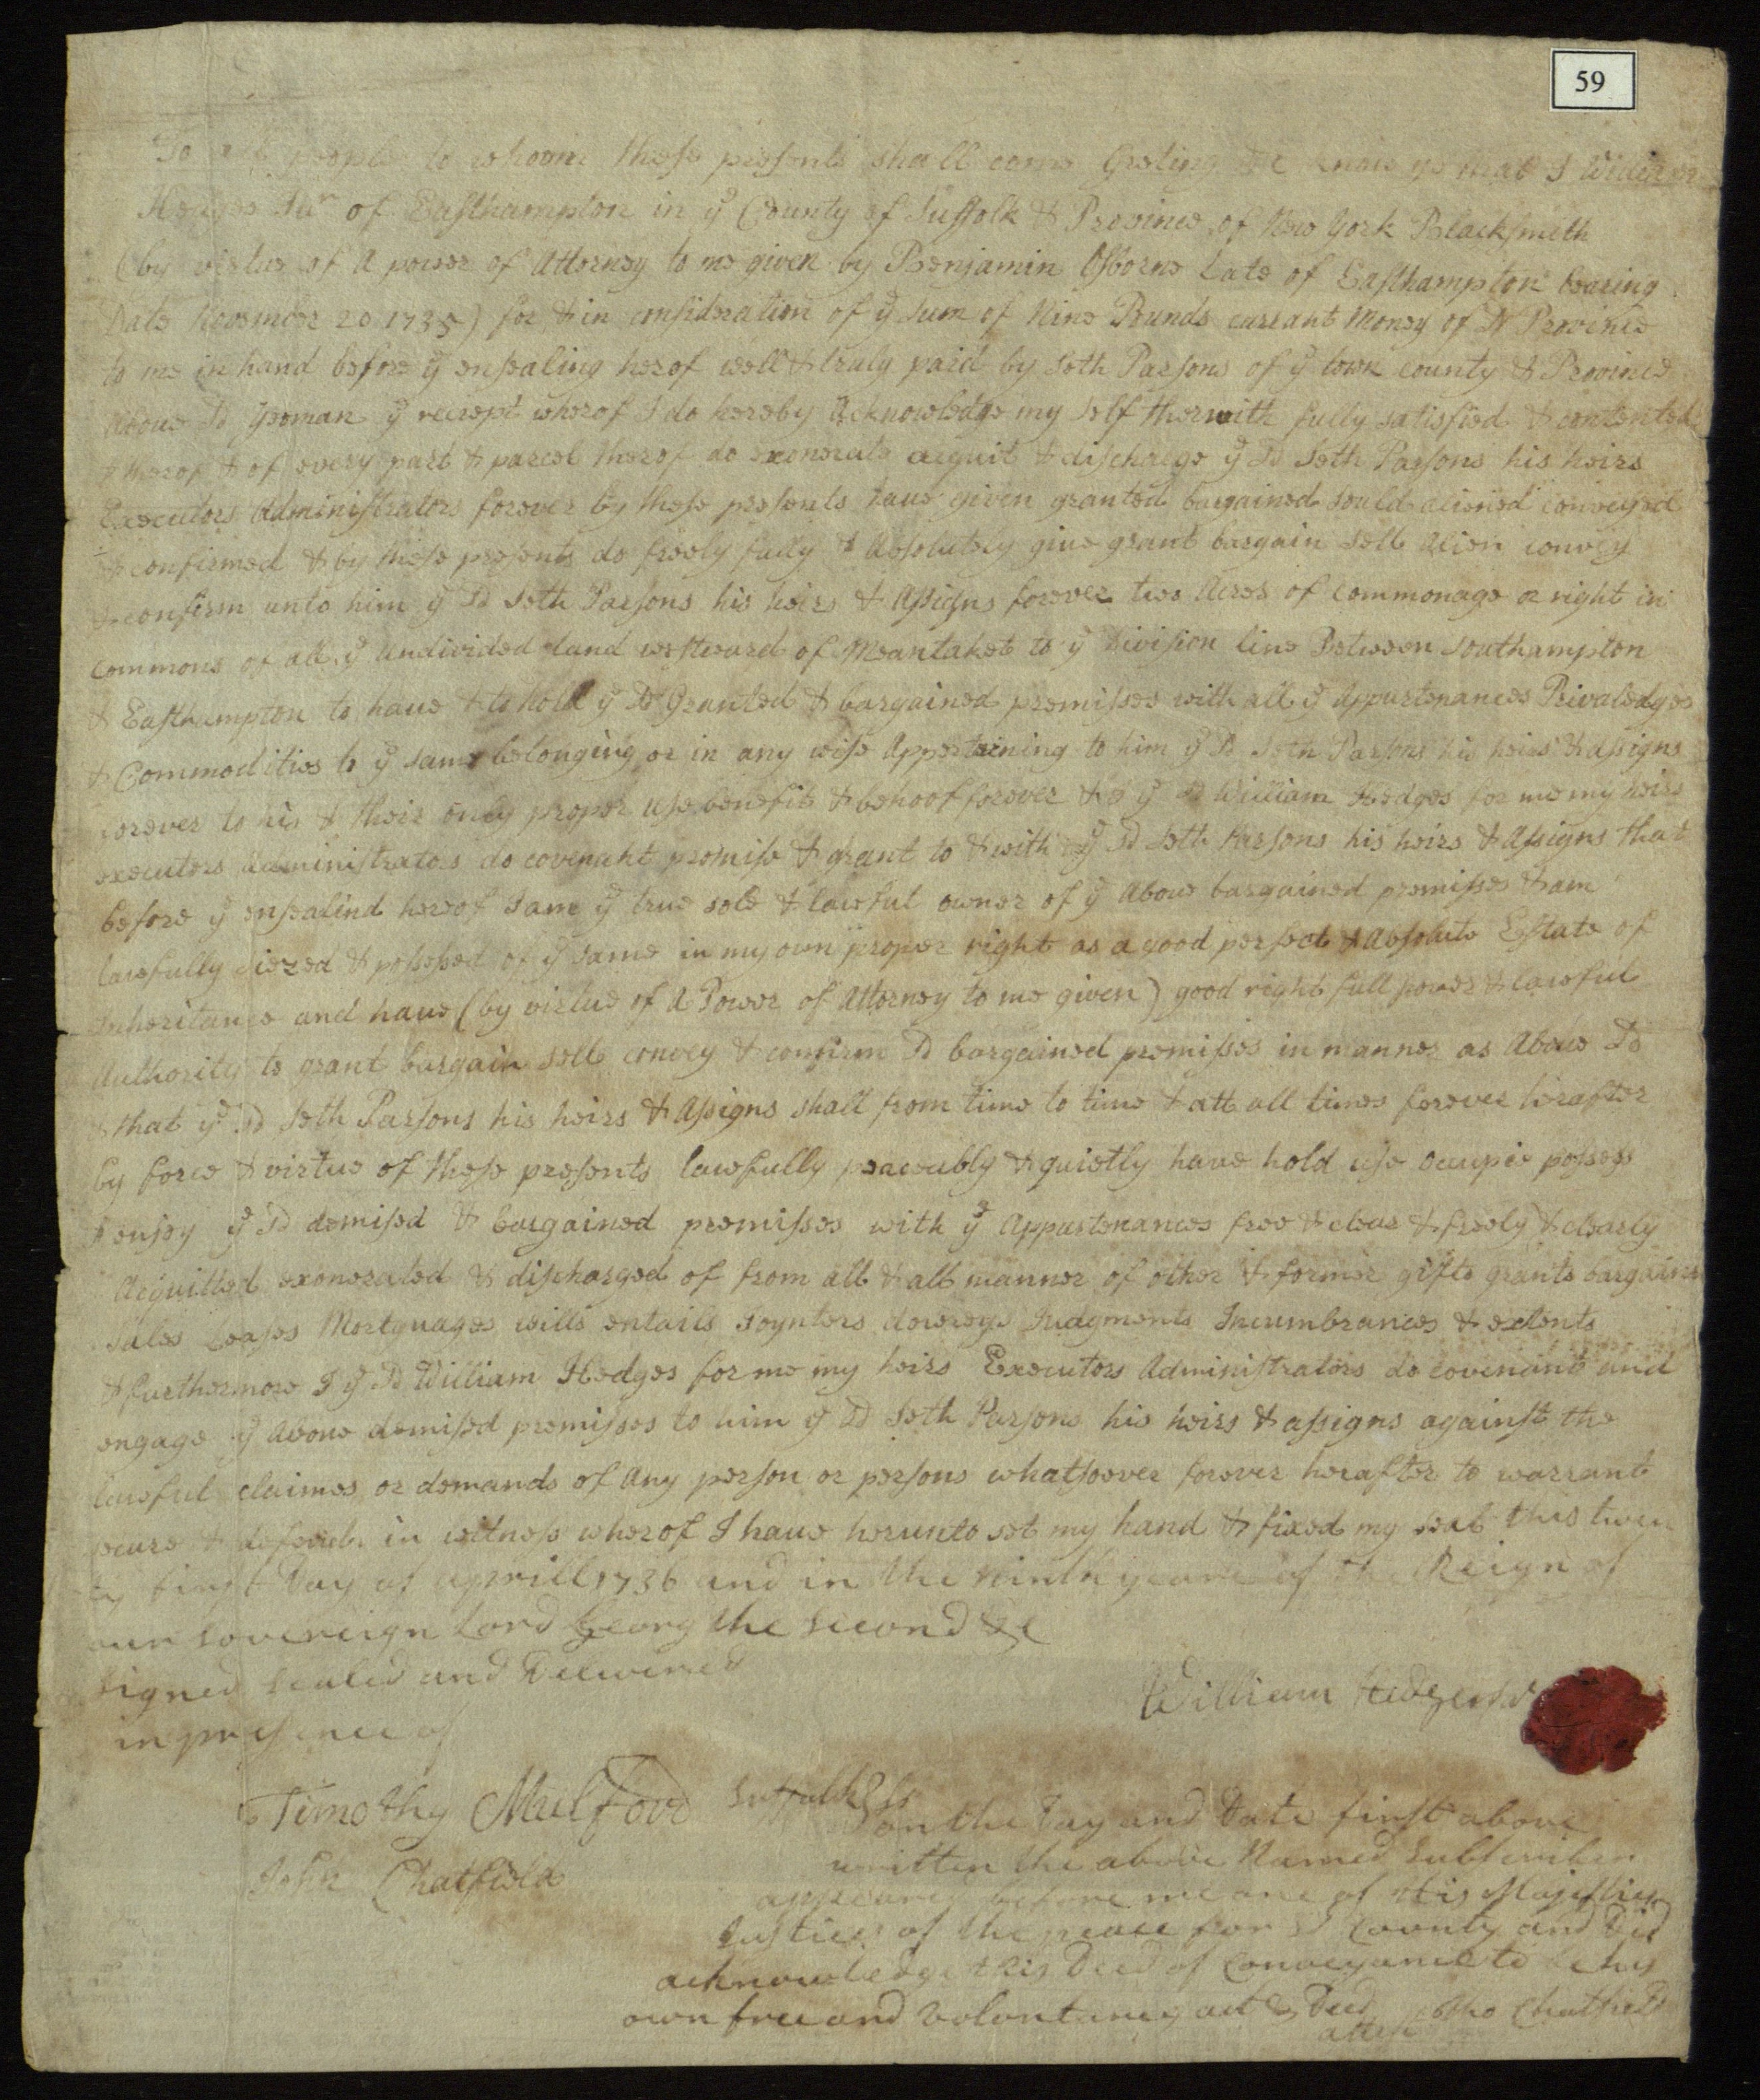 59
To all people to whom these presents shall come Greting &c know ye that I William
Hedges Junr of Easthampton in ye County of Suffolk & Province of New York Blacksmith
(by virtue of A power of Attorney to me given by Benjamin Osborne Late of Easthampton bearing
Date November 20 1735) for & in considration of ye sum of Nine Pounds currant Money of N Province
to me in hand before ye ensealing herof well & truly paid by Seth Parsons of ye town county & Province
Above Sd yeoman ye receept wherof I do hereby Acknowledge my self therwith fully satisfied & contented
& therof & of every part & parcel therof do exonerate acquit & discharge ye Sd Seth Parsons his heirs
Executors Administrators forever by these presents have given granted bargained sould aliened conveyed
& confirmed & by these presents do freely fully & Absolutely give grant bargain sell Alien convey
& confirm unto him ye Sd Seth Parsons his heirs & Assigns forever two Acres of commonage or right in
commons of all ye Undivided Land westward of Meantaket to ye Division line Between Southampton
& Easthampton to have & to hold ye Sd Granted & bargained premisses with all ye Appurtenances Privaledges
& Commodities to ye same belonging or in any wise Appertaining to him ye Sd Seth Parsons his heirs & assigns
forever to his & their only proper use benefit & behoof forever & I ye Sd William Hedges for me my heirs
executors Administrators do covenant promise & grant to & with ye Sd Seth Parsons his heirs & Assigns that
before ye ensealind hereof I am ye true sole & lawful owner of ye Above bargained premisses & am
lawfully siezed & possesed of ye same in my own proper right as a good perfect & Absolute Estate of
Inheritance and have (by virtue of A Power of Attorney to me given) good right full power & lawful
Authority to grant bargain sell convey & confirm Sd bargained premisses in manner as Above Sd
& that ye Sd Seth Parsons his heirs & Assigns shall from time to time & att all times forever herafter
by force & virtue of these presents lawfully peaceably & quietly have hold use occupie possess
& enjoy ye Sd demised & bargained premisses with ye Appurtenances free & clear & freely & clearly
Acquitted exonerated & discharged of from all & all manner of other & former gifts grants bargains
sales Leases Mortguages wills entails Joynters dowerys Judgments Incumbrances & extents
& furthermore I ye Sd William Hedges for me my heirs Executors Administrators do covenant and
engage ye Above demised premisses to him ye Sd Seth Parsons his heirs & assigns against the
lawful claimes or demands of Any person or persons whatsoever forever herafter to warrant
secure & defend in witness wherof I have herunto set my hand & fixed my seal this twen
ty first Day of aprill 1736 and in the ninth yeare of the Reign of
our Sovereign Lord Georg the Second &c
Signed Sealed and Delivered
in presence of
William Hedges Jur
Timothy Mulford
John Chatfield
Suffolk Ss
on the Day and Date first above
written the above Named Subscriber
appeared before me one of His Majesties
Justices of the peace for Sd County and Did
acknowledge this Deed of Conveyance to be his
own free and voluntarey act & Deed
attest Tho Chatfield